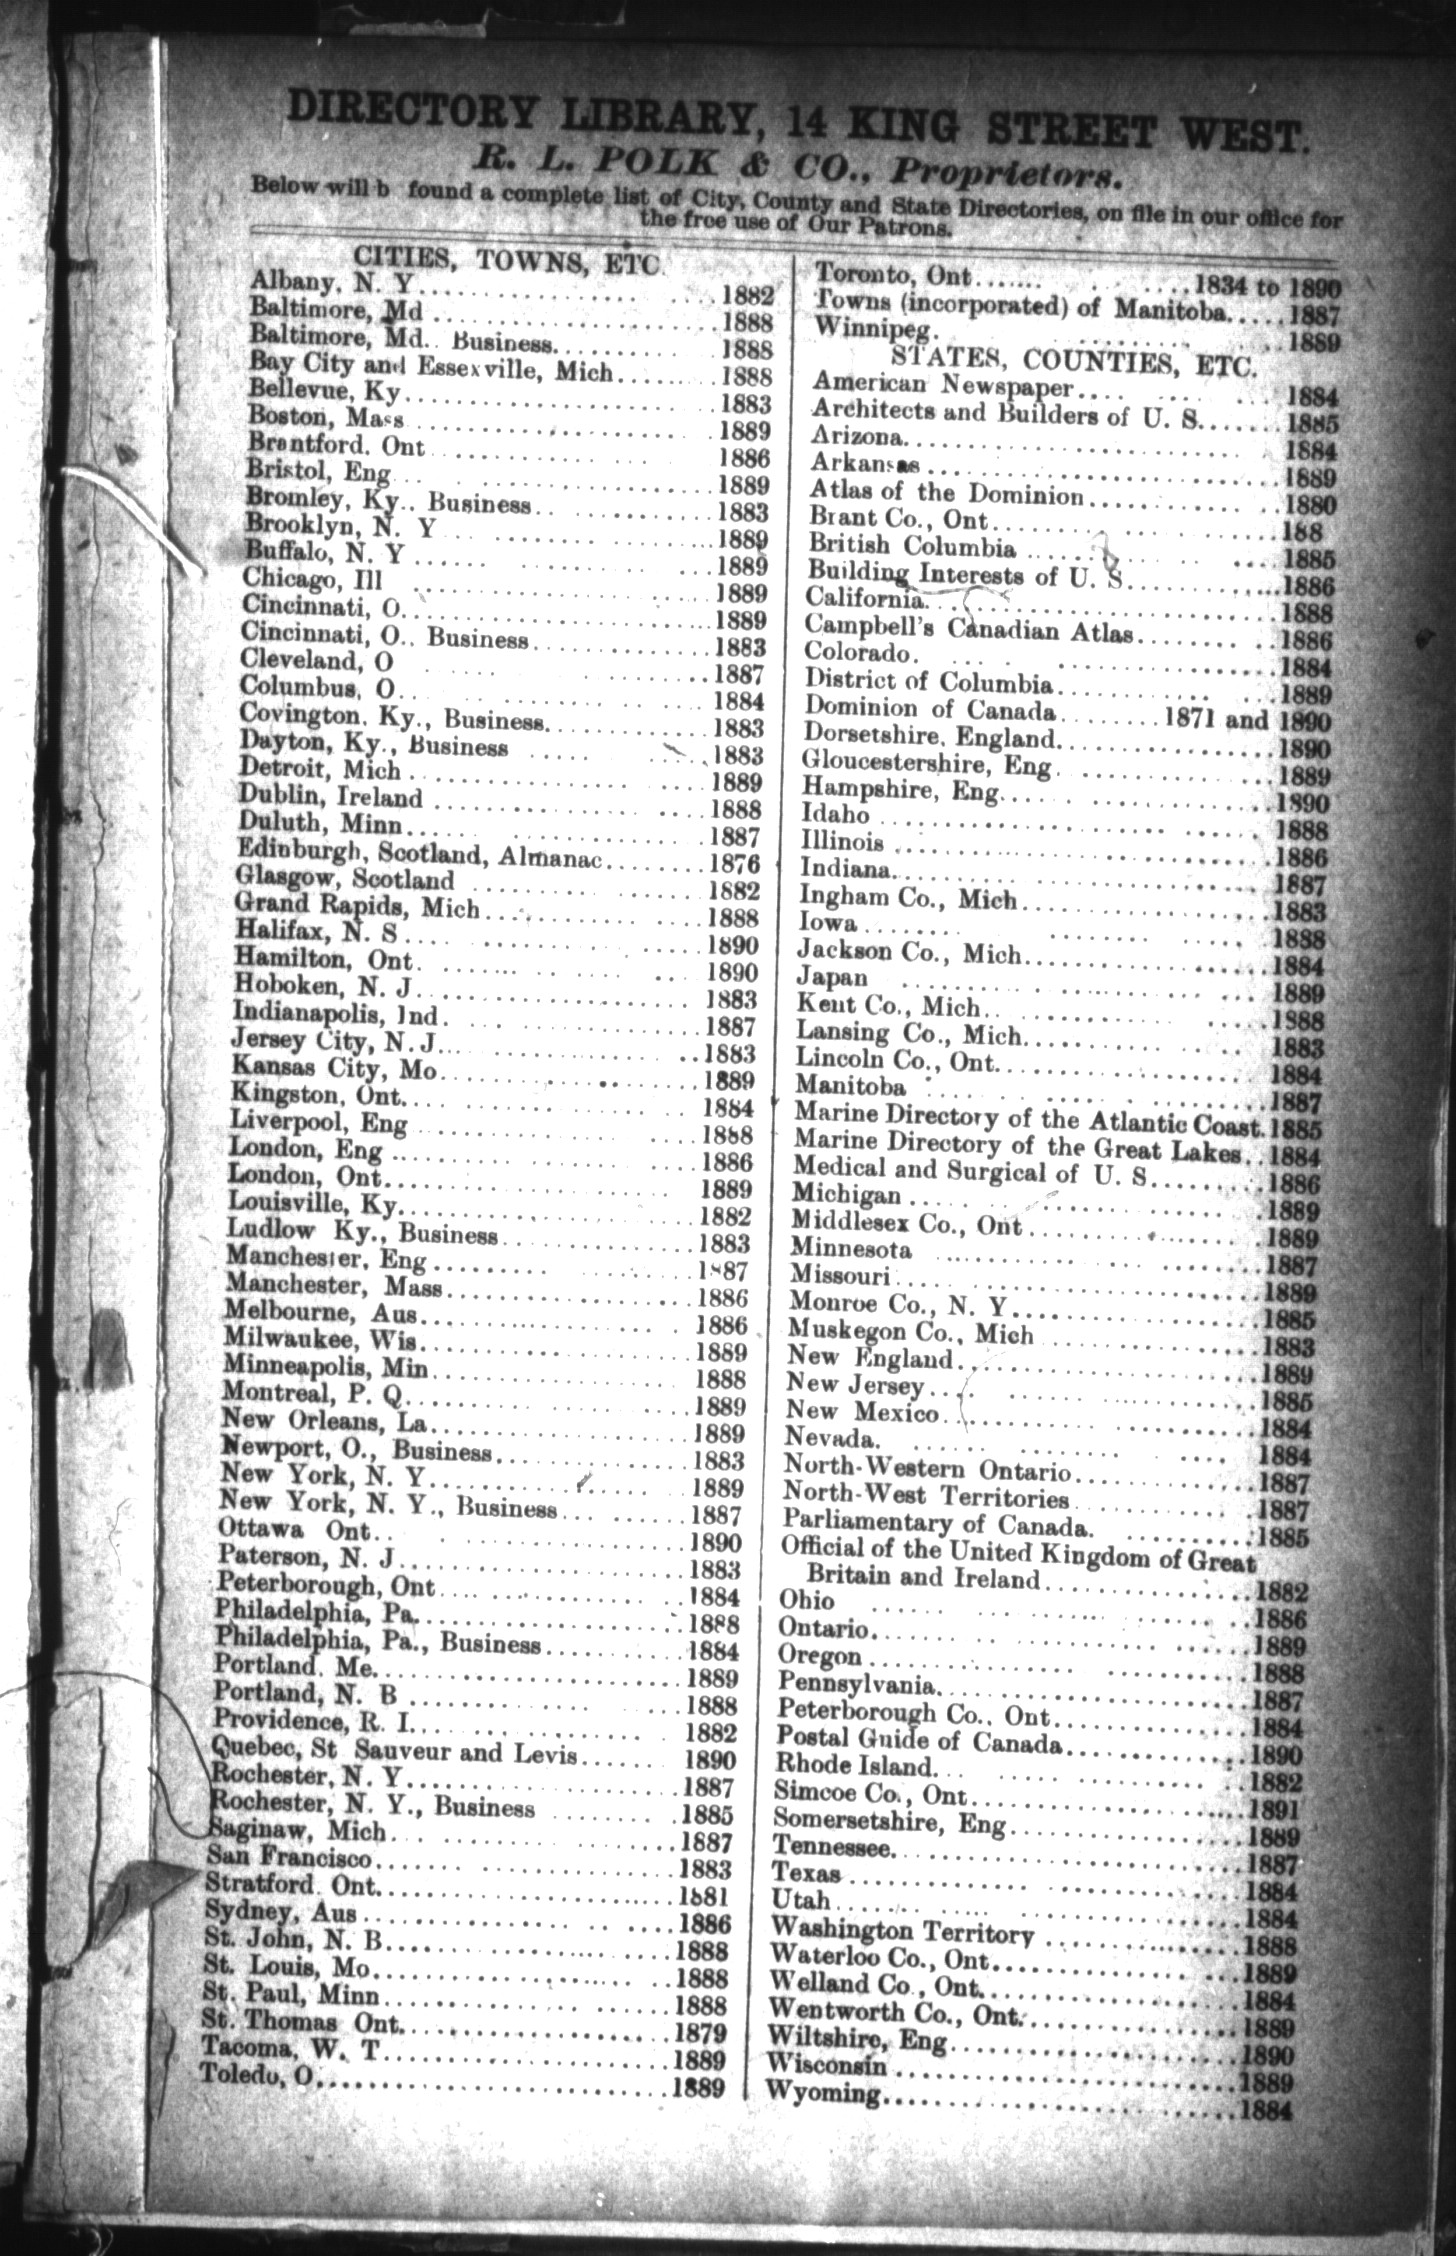 DIRECTORY LIBRARY, 14 KING STREET WEST.
R. L. POLK & CO., Proprietors.
Below will b found a complete list of City, County and State Directories, on file in our office for
the free use of Our Patrons.
CITIES, TOWNS, ETC.
Albany, N. Y. 1882
Baltimore, Md 1888
Baltimore, Md.. Business 1888
Bay City and Essexville, Mich 1888
Bellevue, Ky 1883
Boston, Mass 1889
Brantford. Ont 1886
Bristol, Eng 1889
Bromley, Ky.. Business 1883
Brooklyn, N. Y 1889
Buffalo, N. Y 1889
Chicago, Ill 1889
Cincinnati, O. 1889
Cincinnati, O.. Business 1883
Cleveland, O 1887
Columbus, O. 1884
Covington. Ky., Business 1883
Dayton, Ky., Business 1883
Detroit, Mich 1889
Dublin, Ireland 1888
Duluth, Minn 1887
Edinburgh, Scotland, Almanac 1876
Glasgow, Scotland 1882
Grand Rapids, Mich 1888
Halifax, N. S 1890
Hamilton, Ont. 1890
Hoboken, N. J. 1883
Indianapolis, Ind. 1887
Jersey City, N. J. 1883
Kansas City, Mo 1889
Kingston, Ont. 1884
Liverpool, Eng 1888
London, Eng 1886
London, Ont. 1889
Louisville, Ky. 1882
Ludlow Ky., Business 1883
Manchester, Eng 1887
Manchester, Mass 1886
Melbourne, Aus 1886
Milwaukee, Wis 1889
Minneapolis, Min 1888
Montreal, P. Q. 1889
New Orleans, La 1889
Newport, O., Business 1883
New York, N. Y 1889
New York, N. Y., Business 1887
Ottawa Ont 1890
Paterson, N. J 1883
Peterborough, Ont 1884
Philadelphia, Pa. 1888
Philadelphia, Pa., Business 1884
Portland. Me. 1889
Portland, N. B 1888
Providence, R. I. 1882
Quebec, St Sauveur and Levis 1890
Rochester, N. Y 1887
Rochester, N. Y., Business 1885
Saginaw, Mich 1887
San Francisco 1883
Stratford. Ont. 1881
Sydney, Aus 1886
St. John, N. B. 1888
St. Louis, Mo 1888
St. Paul, Minn 1888
St. Thomas Ont. 1879
Tacoma, W. T. 1889
Toledo, O. 1889
Toronto, Ont 1834 to 1890
Towns (incorporated) of Manitoba 1887
Winnipeg. 1889
STATES, COUNTIES, ETC.
American Newspaper 1884
Architects and Builders of U. S. 1885
Arizona 1884
Arkansas 1889
Atlas of the Dominion 1880
Brant Co., Ont 188
British Columbia 1885
Building Interests of U. S. 1886
California 1888
Campbell's Canadian Atlas 1886
Colorado. 1884
District of Columbia 1889
Dominion of Canada 1871 and 1890
Dorsetshire. England 1890
Gloucestershire, Eng. 1889
Hampshire, Eng. 1890
Idaho 1888
Illinois 1886
Indiana. 1887
Ingham Co., Mich 1883
Iowa 1888
Jackson Co., Mich 1884
Japan 1889
Kent Co., Mich 1888
Lansing Co., Mich 1883
Lincoln Co., Ont. 1884
Manitoba 1887
Marine Directory of the Atlantic Coast. 1885
Marine Directory of the Great Lakes 1884
Medical and Surgical of U. S 1886
Michigan 1889
Middlesex Co., Ont 1889
Minnesota 1887
Missouri 1889
Monroe Co., N. Y. 1885
Muskegon Co., Mich 1883
New England 1889
New Jersey 1885
New Mexico 1884
Nevada. 1884
North-Western Ontario 1887
North-West Territories 1887
Parliamentary of Canada. 1885
Official of the United Kingdom of Great
Britain and Ireland 1882
Ohio 1886
Ontario 1889
Oregon 1888
Pennsylvania. 1887
Peterborough Co., Ont. 1884
Postal Guide of Canada 1890
Rhode Island 1882
Simcoe Co., Ont 1891
Somersetshire, Eng 1889
Tennessee. 1887
Texas 1884
Utah 1884
Washington Territory 1888
Waterloo Co., Ont. 1889
Welland Co., Ont. 1884
Wentworth Co., Ont. 1889
Wiltshire, Eng. 1890
Wisconsin 1889
Wyoming 1884